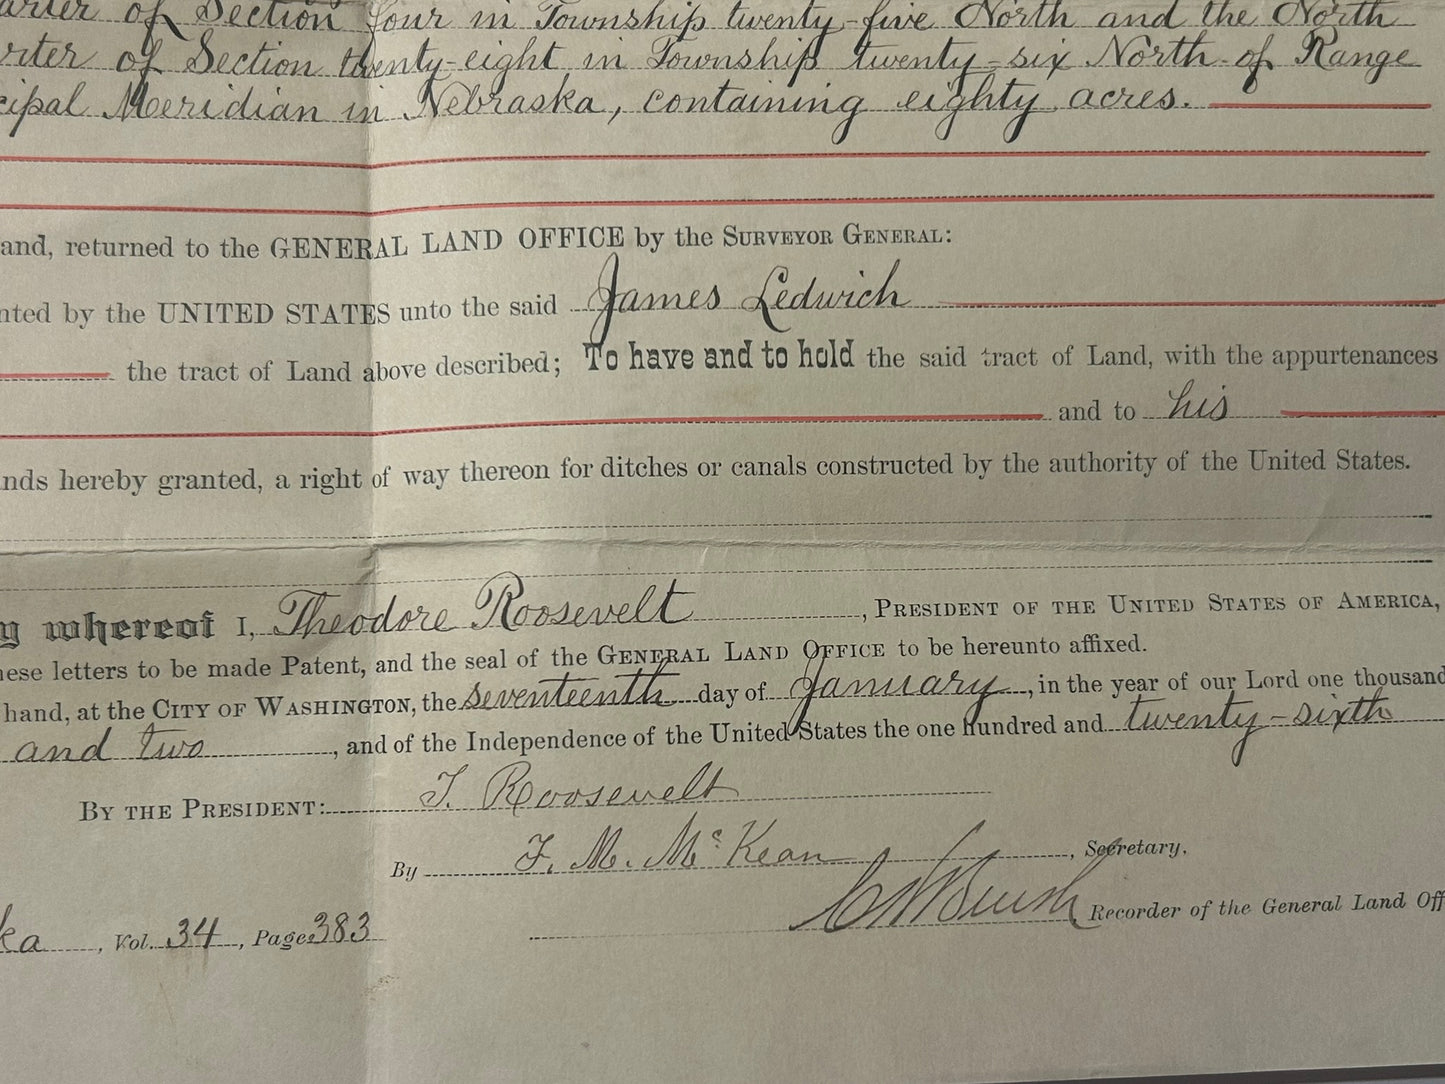 arter of Section four in Township twenty-five North and the North
rter of Section twenty-eight in Township twenty-six North of Range
cipal Meridian in Nebraska, containing eighty acres.
and, returned to the GENERAL LAND OFFICE by the SURVEYOR GENERAL:
nted by the UNITED STATES unto the said James Ledwich
the tract of Land above described; To have and to hold the said tract of Land, with the appurtenances
and to his
nds hereby granted, a right of way thereon for ditches or canals constructed by the authority of the United States.
y whereof I, Theodore Roosevelt, PRESIDENT OF THE UNITED STATES OF AMERICA,
hese letters to be made Patent, and the seal of the GENERAL LAND OFFICE to be hereunto affixed.
hand, at the CITY OF WASHINGTON, the seventeenth day of January, in the year of our Lord one thousand
and two, and of the Independence of the United States the one hundred and twenty-sixth
BY THE PRESIDENT: T. Roosevelt
By F. M. McKean, Secretary.
Recorder of the General Land Off
ka, Vol. 34, Page 383